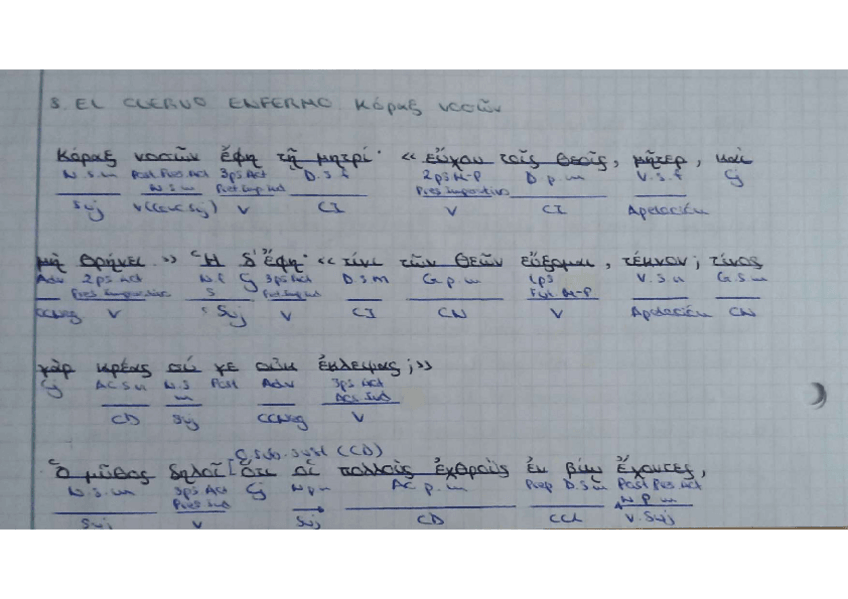 5. EL CUERVO ENFERMO. Κόραξ νοσῶν
Κόραξ νοσῶν ἔφη τῇ μητρί· «εὔχου τοῖς θεοῖς, μῆτερ, καὶ
N.S.m Part Pres. Act 3ps Act D.S.f 2ps M-P D.p.m V.S.f Cj
N.S.m Pret Imp Ind Pres. imperativo
Suj V (Conc Suj) V CI V CI Apelación
μὴ θρήνει.» Ἡ δ' ἔφη· «τίνι τῶν θεῶν εὔξομαι, τέκνον; τίνος
Adv 2ps Act N.f Cj 3ps Act D.S.m G.p.m 1ps V.S.n G.S.m
Pres. imperativo S Pret Imp Ind Fut. M-P
CCNeg V Suj V CI CN V Apelación CN
γὰρ κρέας σύ γε οὐκ ἔκλεψας;»
Cj AC.S.n N.S Part Adv 3ps Act
m Ao. Ind
CD Suj CCNeg V
O. Sub. Sust (CD)
Ὁ μῦθος δηλοῖ [ὅτι οἱ πολλοὺς ἐχθροὺς ἐν βίῳ ἔχοντες,
N.S.m 3ps Act Cj N.p.m AC p.m Prep D.S.m Part Pres. Act
Pres Ind N.P.m
Suj V Suj CD CCL V. Suj